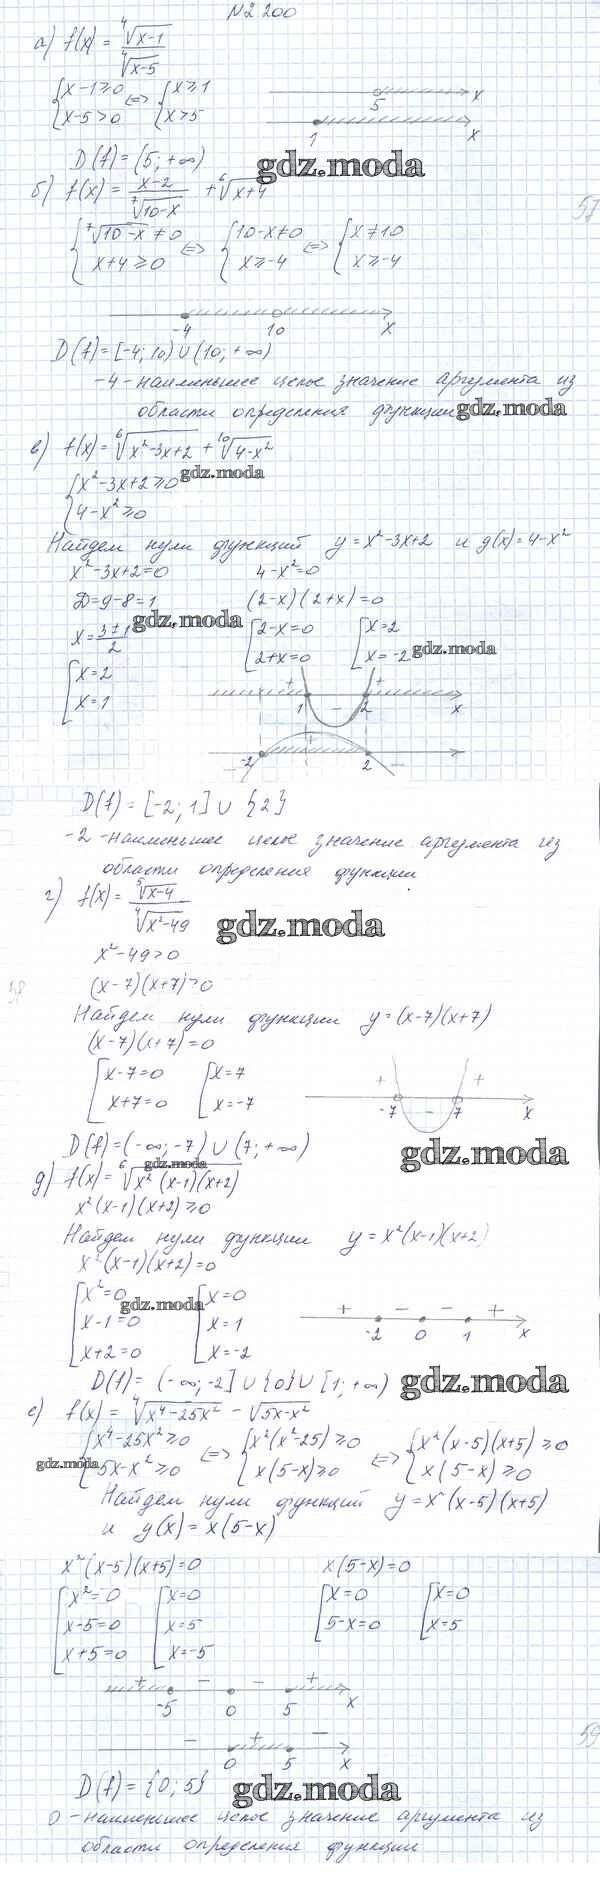 N2 200
а) f(x) = ⁴√(x-1) / ⁴√(x-5)
{x-1≥0 <=> {x≥1
{x-5>0 {x>5
5 x
1 x
D(f) = (5; +∞)
gdz.moda
б) f(x) = (x-2) / ⁷√(10-x) + ⁶√(x+4)
{⁷√(10-x) ≠ 0 <=> {10-x≠0 <=> {x≠10
{x+4≥0 {x≥-4 {x≥-4
57
-4 10 x
D(f) = [-4; 10) ∪ (10; +∞)
-4 - наименьшее целое значение аргумента из
области определения функции
gdz.moda
в) f(x) = ⁶√(x²-3x+2) + ¹⁰√(4-x²)
gdz.moda
{x²-3x+2≥0
{4-x²≥0
Найдем нули функций y = x²-3x+2 и g(x) = 4-x²
x²-3x+2=0 4-x²=0
D=9-8=1 (2-x)(2+x)=0
gdz.moda
x = (3±1)/2 [2-x=0 [x=2
[2+x=0 [x=-2
gdz.moda
[x=2
[x=1
+ 1 - 2 + x
- -2 + 2 -
D(f) = [-2; 1] ∪ {2}
-2 - наименьшее целое значение аргумента из
области определения функции
г) f(x) = ⁵√(x-4) / ⁴√(x²-49)
gdz.moda
x²-49>0
(x-7)(x+7)>0
58
Найдем нули функции y = (x-7)(x+7)
(x-7)(x+7)=0
[x-7=0 [x=7
[x+7=0 [x=-7
+ -7 - 7 + x
D(f) = (-∞; -7) ∪ (7; +∞)
gdz.moda
gdz.moda
д) f(x) = ⁶√(x²(x-1)(x+2))
x²(x-1)(x+2)≥0
Найдем нули функции y = x²(x-1)(x+2)
x²(x-1)(x+2)=0
[x²=0 [x=0
gdz.moda
[x-1=0 [x=1
[x+2=0 [x=-2
+ -2 - 0 - 1 + x
D(f) = (-∞; -2] ∪ {0} ∪ [1; +∞)
gdz.moda
е) f(x) = ⁴√(x⁴-25x²) - √(5x-x²)
{x⁴-25x²≥0 <=> {x²(x²-25)≥0 <=> {x²(x-5)(x+5)≥0
{5x-x²≥0 {x(5-x)≥0 {x(5-x)≥0
gdz.moda
Найдем нули функций y = x²(x-5)(x+5)
и g(x) = x(5-x)
x²(x-5)(x+5)=0 x(5-x)=0
[x²=0 [x=0 [x=0 [x=0
[x-5=0 [x=5 [5-x=0 [x=5
[x+5=0 [x=-5
+ -5 - 0 - 5 + x
59
- 0 + 5 - x
D(f) = {0; 5}
gdz.moda
0 - наименьшее целое значение аргумента из
области определения функции